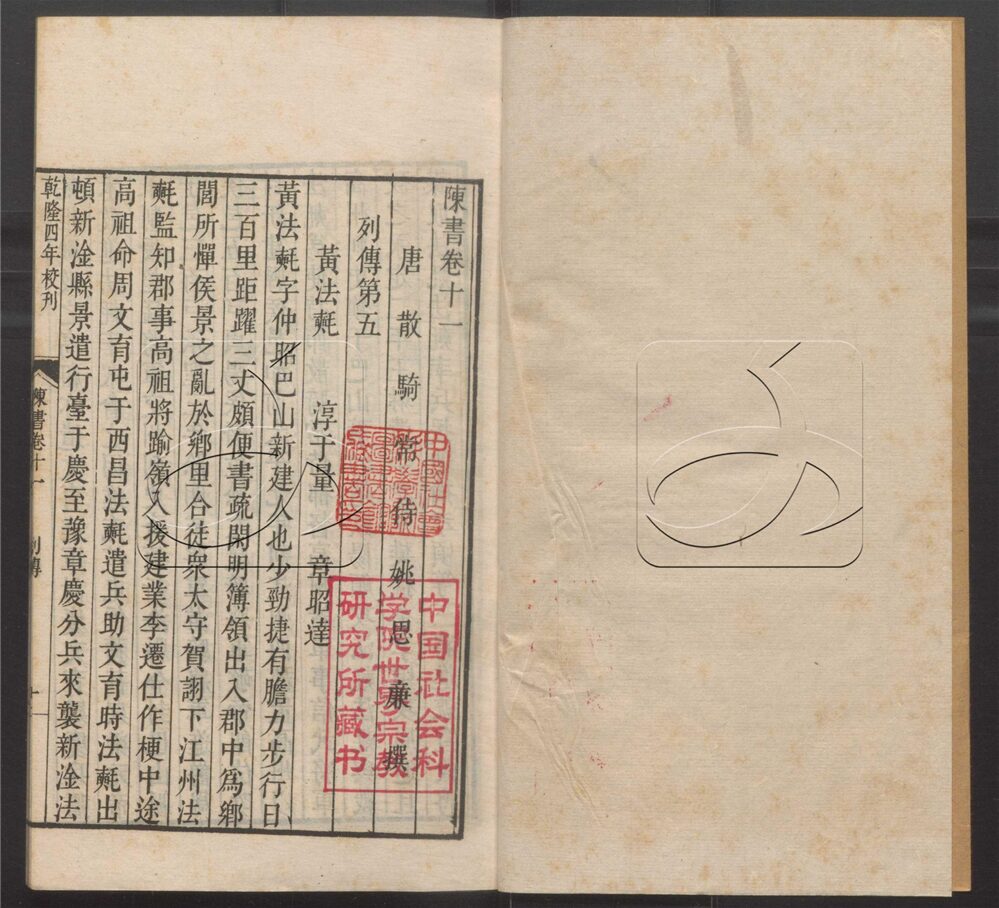 陳書卷十一
唐散騎常侍姚思廉撰
列傳第五
黃法𣰰　淳于量　章昭達
黃法𣰰字仲昭巴山新建人也少勁捷有膽力步行日
三百里距躍三丈頗便書疏閑明簿領出入郡中爲鄉
閭所憚侯景之亂於鄉里合徒衆太守賀詡下江州法
𣰰監知郡事高祖將踰嶺入援建業李遷仕作梗中途
高祖命周文育屯于西昌法𣰰遣兵助文育時法𣰰出
頓新淦縣景遣行臺于慶至豫章慶分兵來襲新淦法
乾隆四年校刊
陳書卷十一
列傳
中國社會
中国社会科
学院世界宗教
研究所藏书